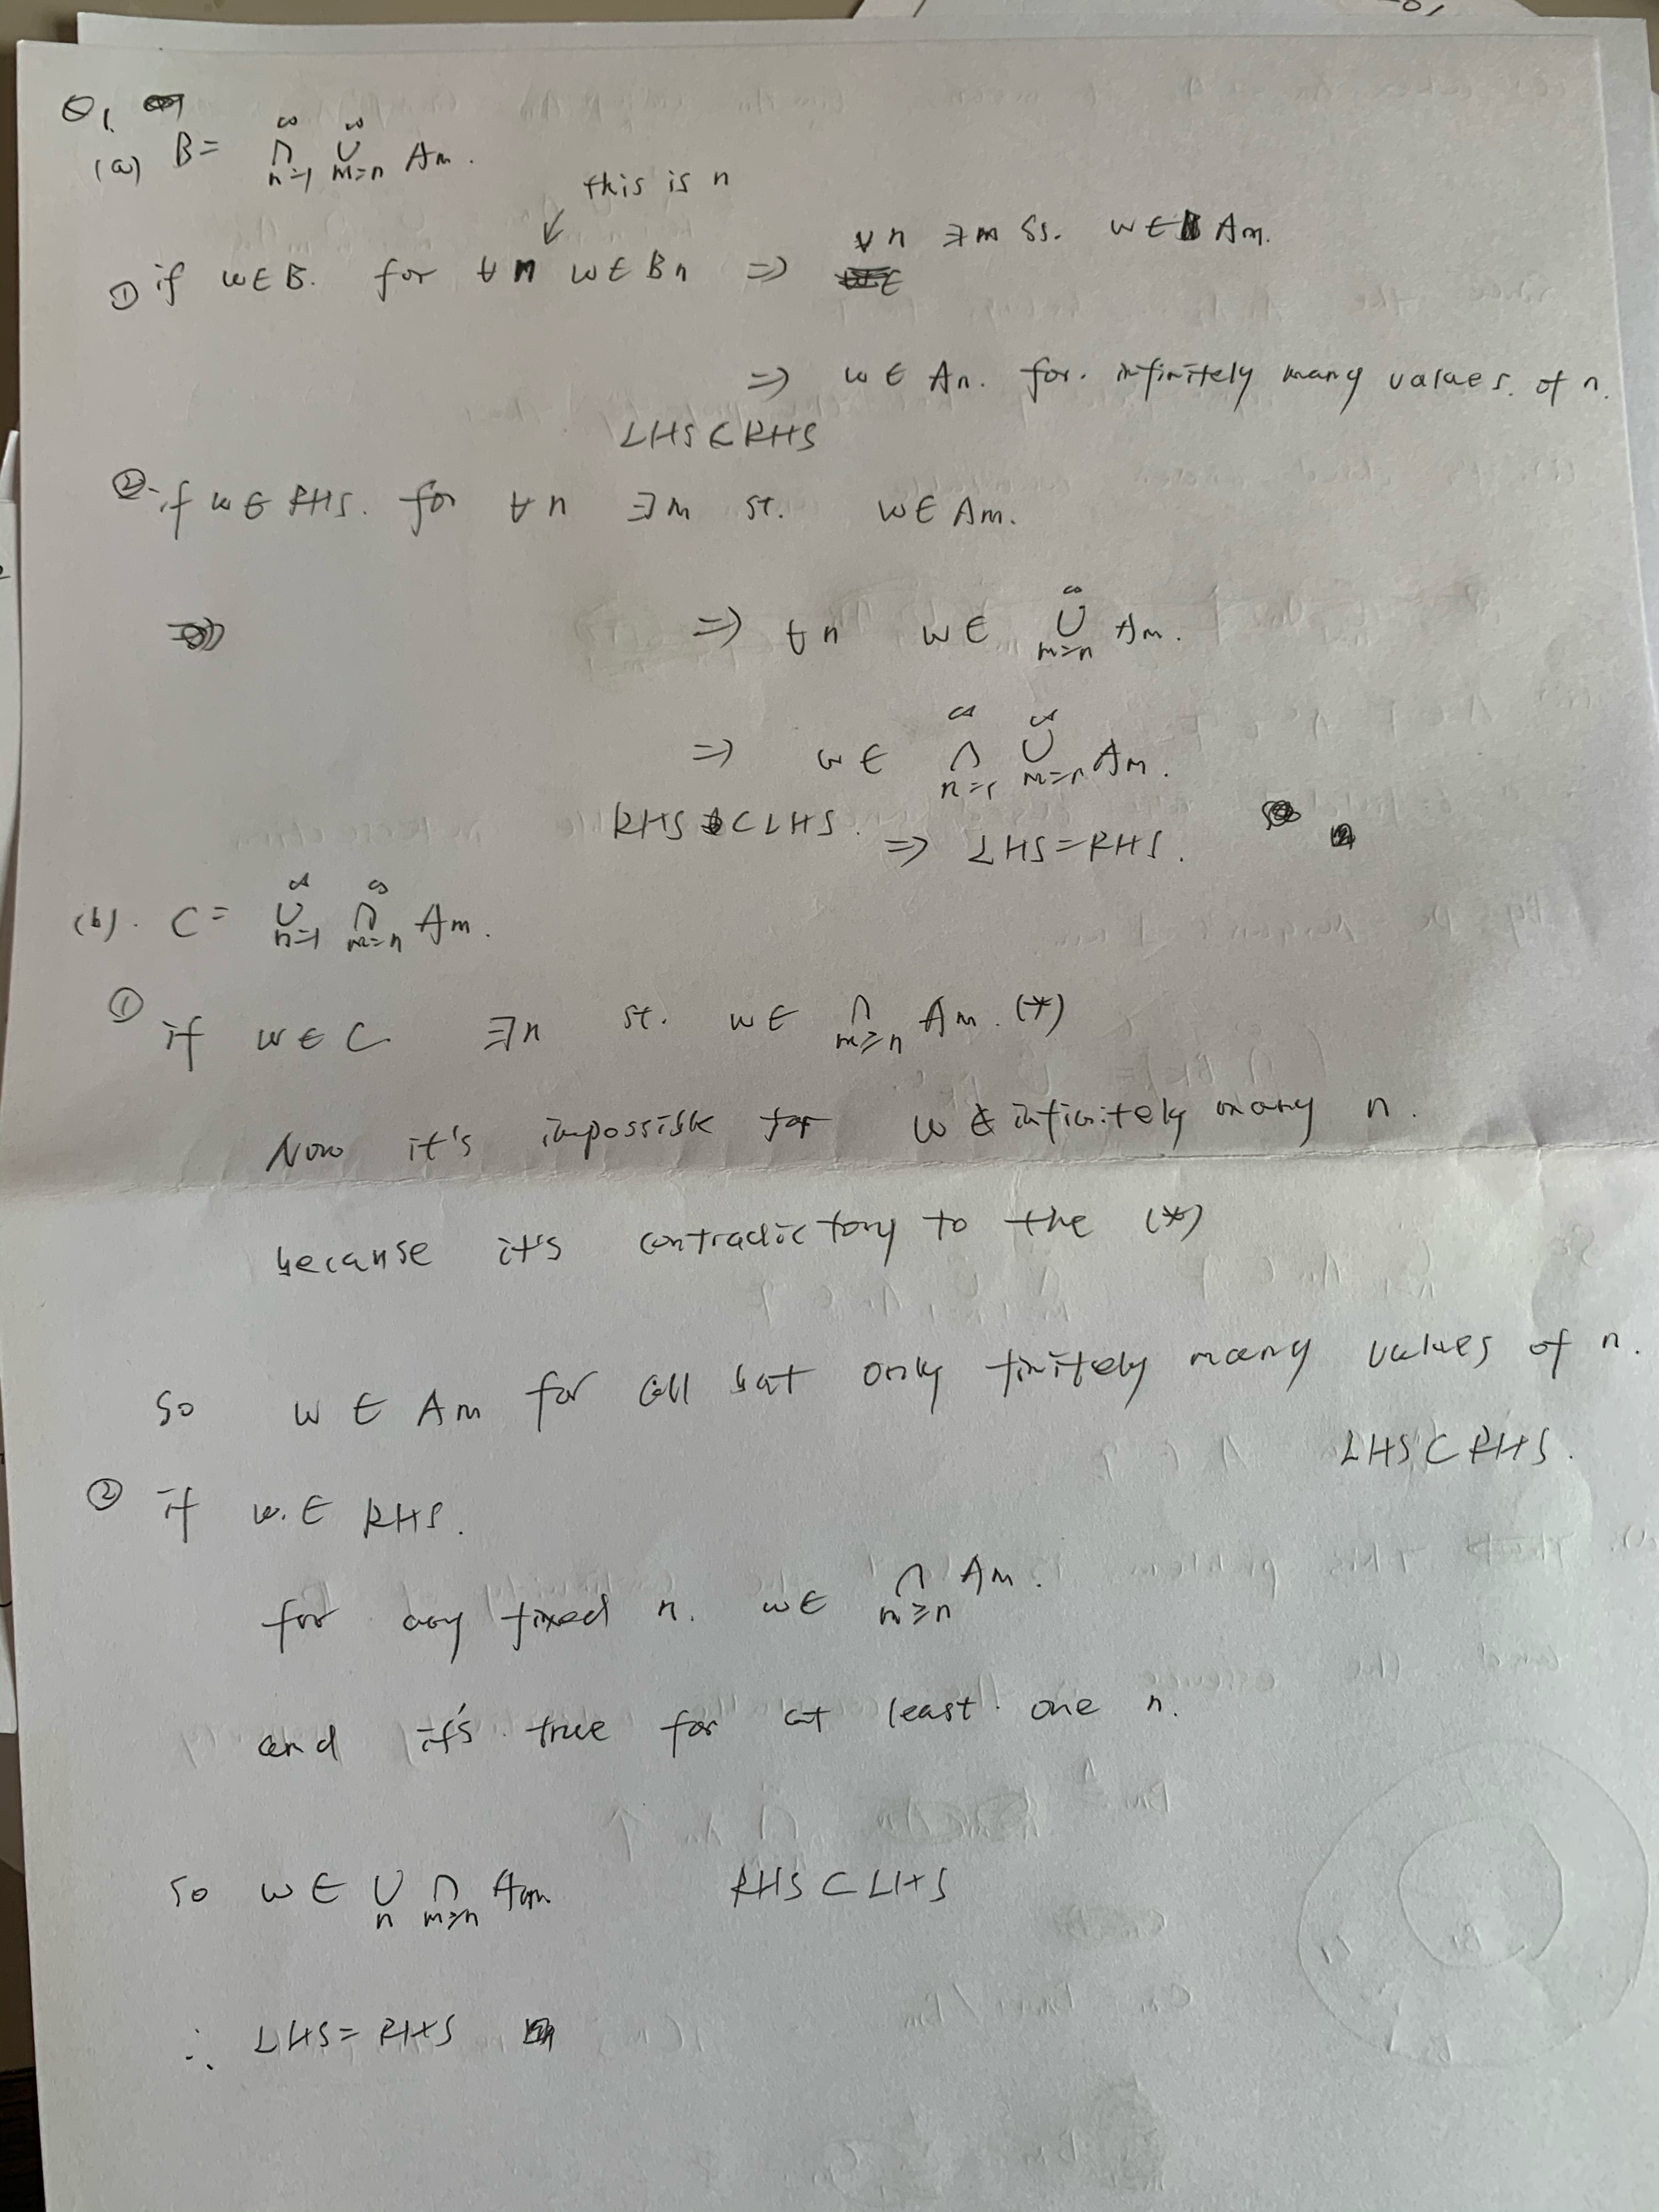 Q1.
(a) B = ∞∩n=1 ∞∪m=n Am.
this is n
↙
① if w∈B. for ∀n w∈Bn ⇒ ∀n ∃m ss. w∈ Am.
⇒ w∈An. for. infinitely many values. of n.
LHS⊂RHS
② if w∈RHS. for ∀n ∃m st. w∈Am.
⇒ ∀n w∈ ∞∪m=n Am.
⇒ w∈ ∞∩n=1 ∞∪m=n Am.
RHS ⊂LHS. ⇒ LHS=RHS.
(b). C= ∞∪n=1 ∞∩m=n Am.
① if w∈C ∃n st. w∈ ∩m≥n Am. (*)
Now it's impossible for w ∉ infinitely many n.
because it's contradictory to the (*)
so w∈Am for all but only finitely many values of n.
LHS⊂RHS.
② if w.∈ RHS.
for any fixed n. w∈ ∩m≥n Am.
and it's true for at least one n.
so w∈ ∪n ∩m≥n Am RHS⊂LHS
∴ LHS=RHS